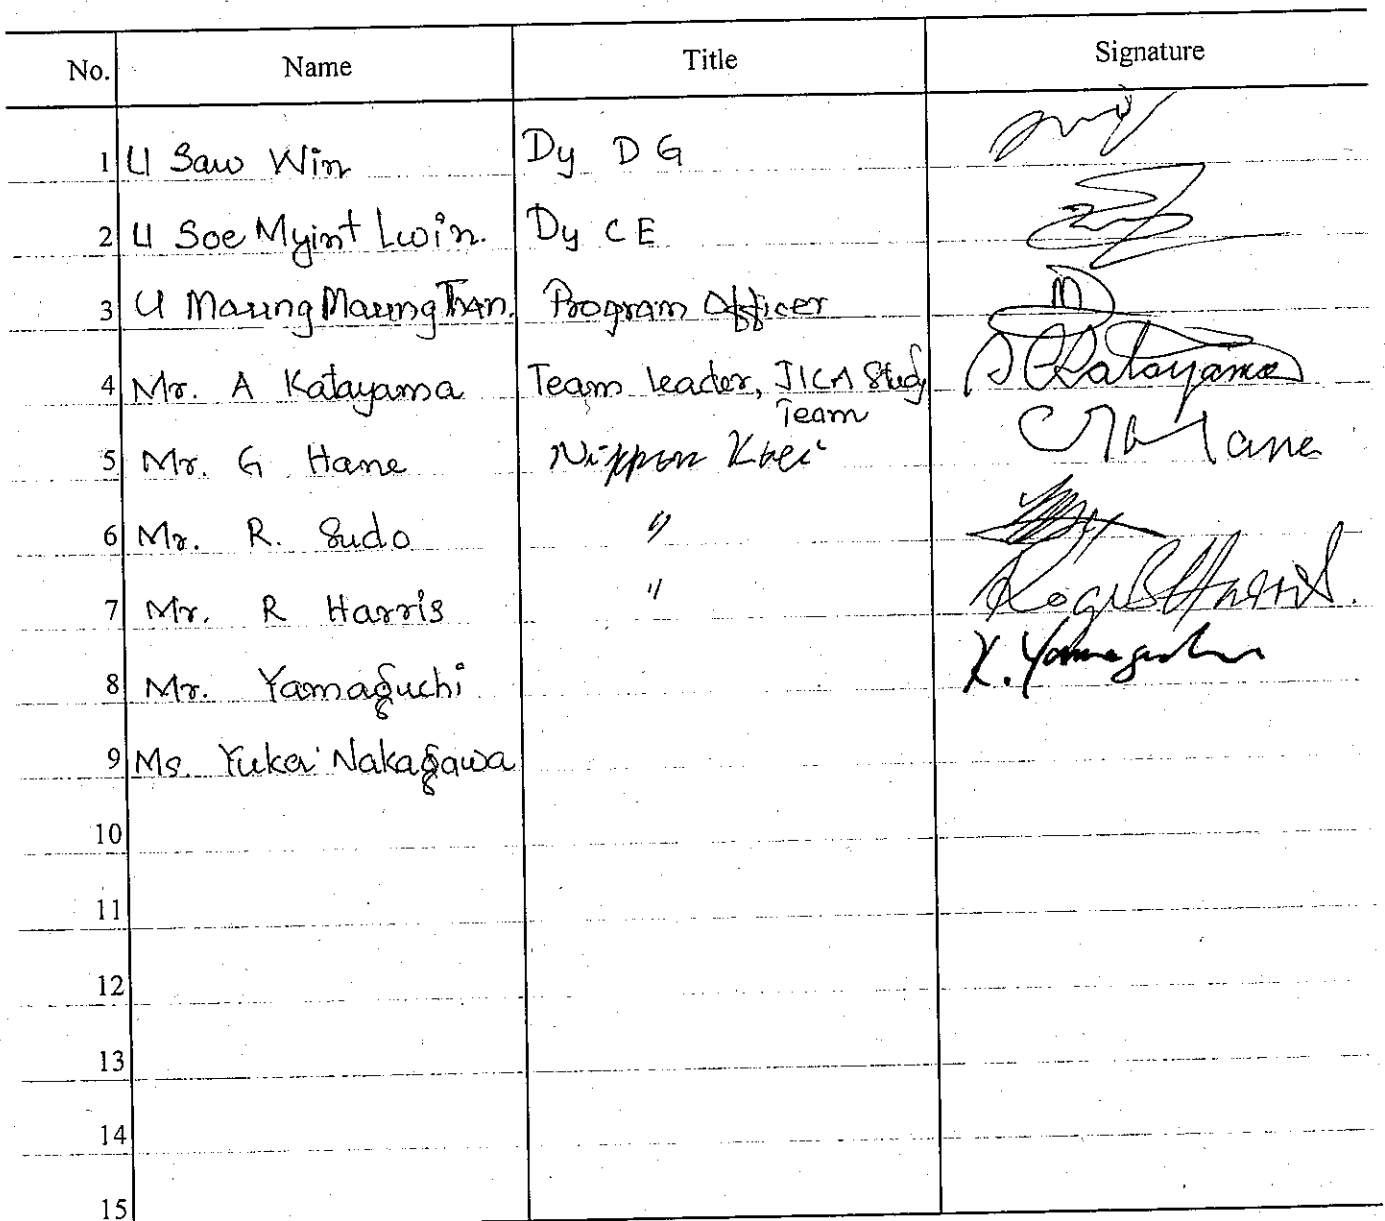 No. Name Title Signature
1 U Saw Win Dy D G
2 U Soe Myint Lwin. Dy C E
3 U Maung Maung Than. Program Officer
4 Mr. A Katayama Team leader, JICA Study Katayama
Team
5 Mr. G Hane Nippon Koei G Hane
6 Mr. R. Sudo "
7 Mr. R Harris " Roger B Harris.
8 Mr. Yamaguchi K. Yamaguchi
9 Ms. Yuka Nakagawa
10
11
12
13
14
15